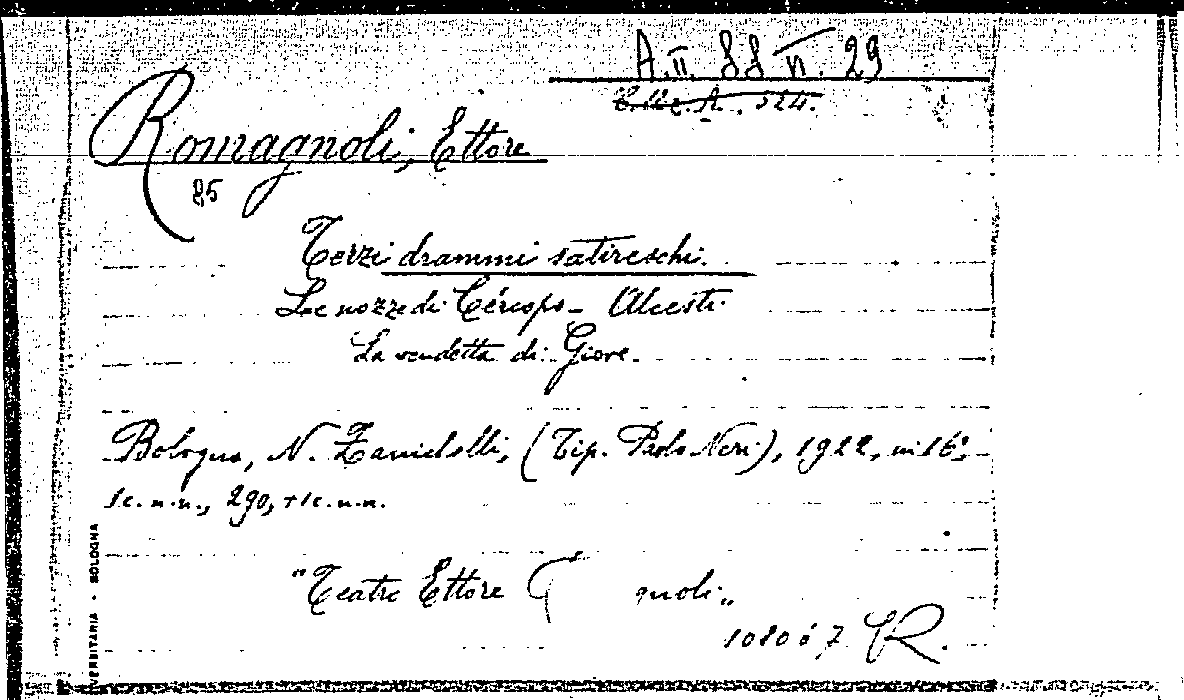 A.II. 88 n. 29
Romagnoli, Ettore
85
Terzi drammi satireschi.
Le nozze di - Alcesti
La vendetta di Giove.
Bologna, N. Zanichelli, (Tip. Paolo Neri), 1922, in 16º,
1c. n.n., 290, + 1c. n.n.
"Teatro Ettore gnoli"
R.
VERSITARIA - BOLOGNA